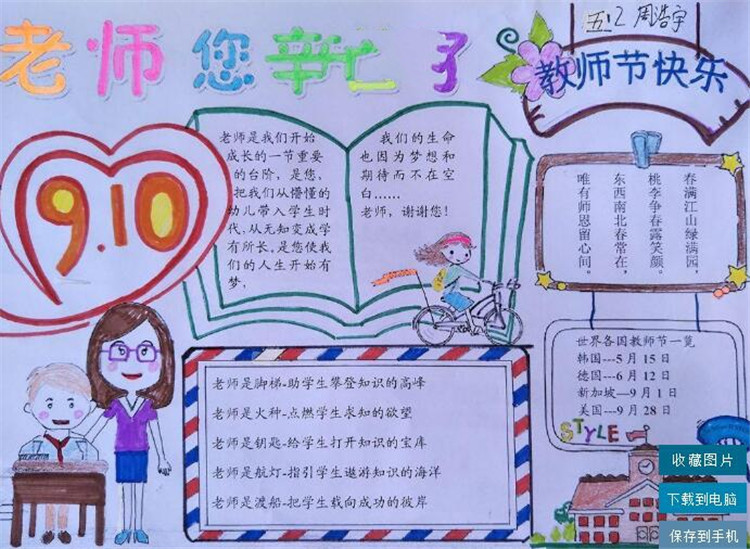 老师您辛亡了
五.2 周浩宇
教师节快乐
9.10
老师是我们开始
成长的一节重要
的台阶，是您，
把我们从懵懂的
幼儿带入学生时
代，从无知变成学
有所长。是您使我
们的人生开始有
梦，
我们的生命
也因为梦想和
期待而不在空
白……
老师，谢谢您！
春满江山绿满园，
桃李争春露笑颜。
东西南北春常在，
唯有师恩留心间。
世界各国教师节一览
韩国---5 月 15 日
德国---6 月 12 日
新加坡---9 月 1 日
美国---9 月 28 日
STYLE
老师是脚梯-助学生攀登知识的高峰
老师是火种-点燃学生求知的欲望
老师是钥匙-给学生打开知识的宝库
老师是航灯-指引学生遨游知识的海洋
老师是渡船-把学生载向成功的彼岸
收藏图片
下载到电脑
保存到手机